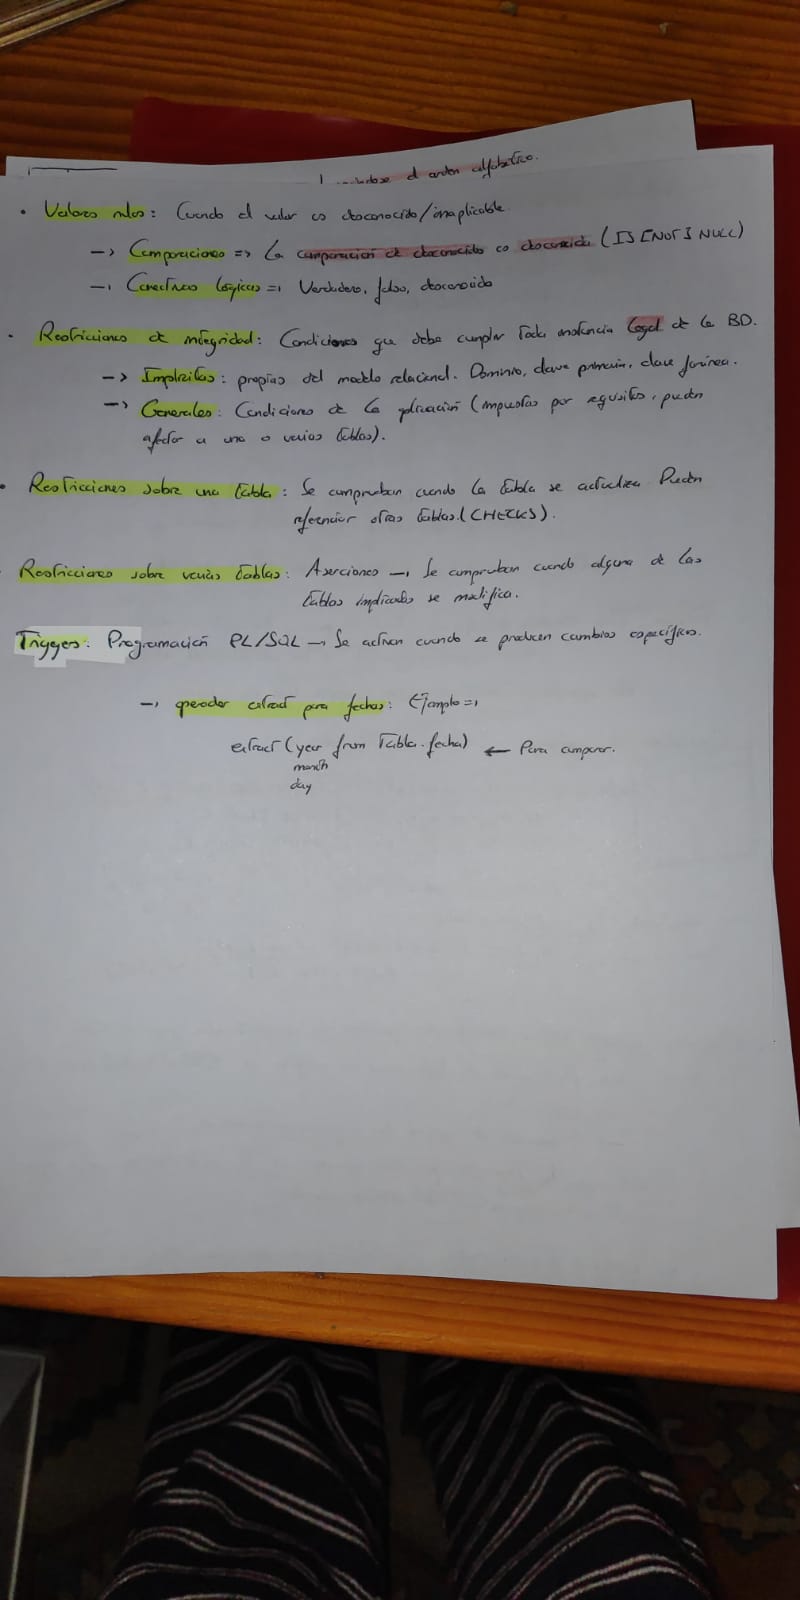 el orden alfabético.
• Valores nulos: Cuando el valor es desconocido/inaplicable.
→ Comparaciones => La comparación de desconocido es desconocida (IS [NOT] NULL)
→ Conectivas lógicas => Verdadero, falso, desconocido
• Restricciones de integridad: Condiciones que debe cumplir toda instancia legal de la BD.
→ Implícitas: propias del modelo relacional. Dominio, clave primaria, clave foránea.
→ Generales: Condiciones de la aplicación (impuestas por requisitos, pueden
afectar a una o varias tablas).
• Restricciones sobre una tabla: Se comprueban cuando la tabla se actualiza. Pueden
referenciar otras tablas. (CHECKS).
• Restricciones sobre varias tablas: Aserciones → Se comprueban cuando alguna de las
tablas indicadas se modifica.
Triggers: Programación PL/SQL → Se activan cuando se producen cambios específicos.
→ operador extract para fechas: Ejemplo =>
extract (year from Tabla.fecha) ← Para comparar.
month
day